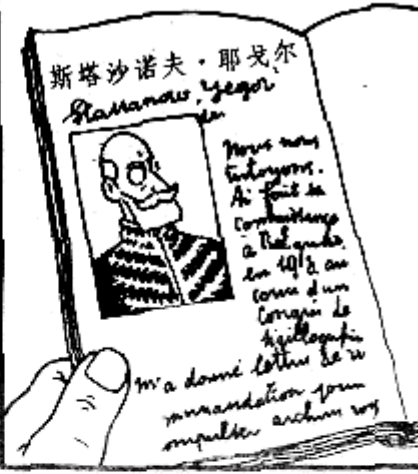 斯塔沙诺夫·耶戈尔
Stassanow, Yegor
Nous nous
tutoyons.
Ai fait sa
à Belgrade
en 19 au
cours d'un
Congrès de
sigillographie
m'a donné lettre de re
mmandation pour
archives roy